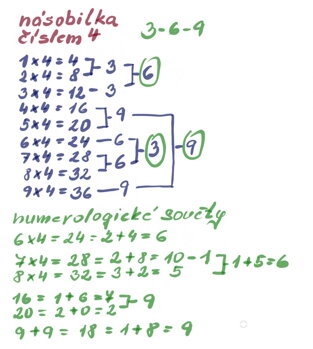 násobilka
číslem 4
3-6-9
1 x 4 = 4
2 x 4 = 8 3 6
3 x 4 = 12 - 3
4 x 4 = 16
5 x 4 = 20 9
6 x 4 = 24 - 6
7 x 4 = 28 6 3 9
8 x 4 = 32
9 x 4 = 36 - 9
numerologické součty
6 x 4 = 24 = 2 + 4 = 6
7 x 4 = 28 = 2 + 8 = 10 - 1
8 x 4 = 32 = 3 + 2 = 5 1 + 5 = 6
16 = 1 + 6 = 7
20 = 2 + 0 = 2 9
9 + 9 = 18 = 1 + 8 = 9